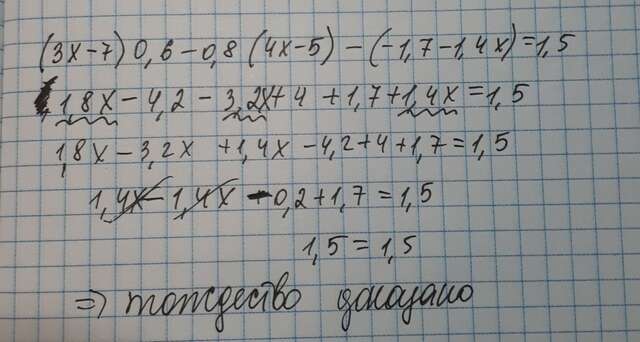 (3x-7)0,6-0,8(4x-5)-(-1,7-1,4x)=1,5
1,8x-4,2-3,2x+4+1,7+1,4x=1,5
1,8x-3,2x+1,4x-4,2+4+1,7=1,5
1,4x-1,4x-0,2+1,7=1,5
1,5=1,5
=> тождество доказано